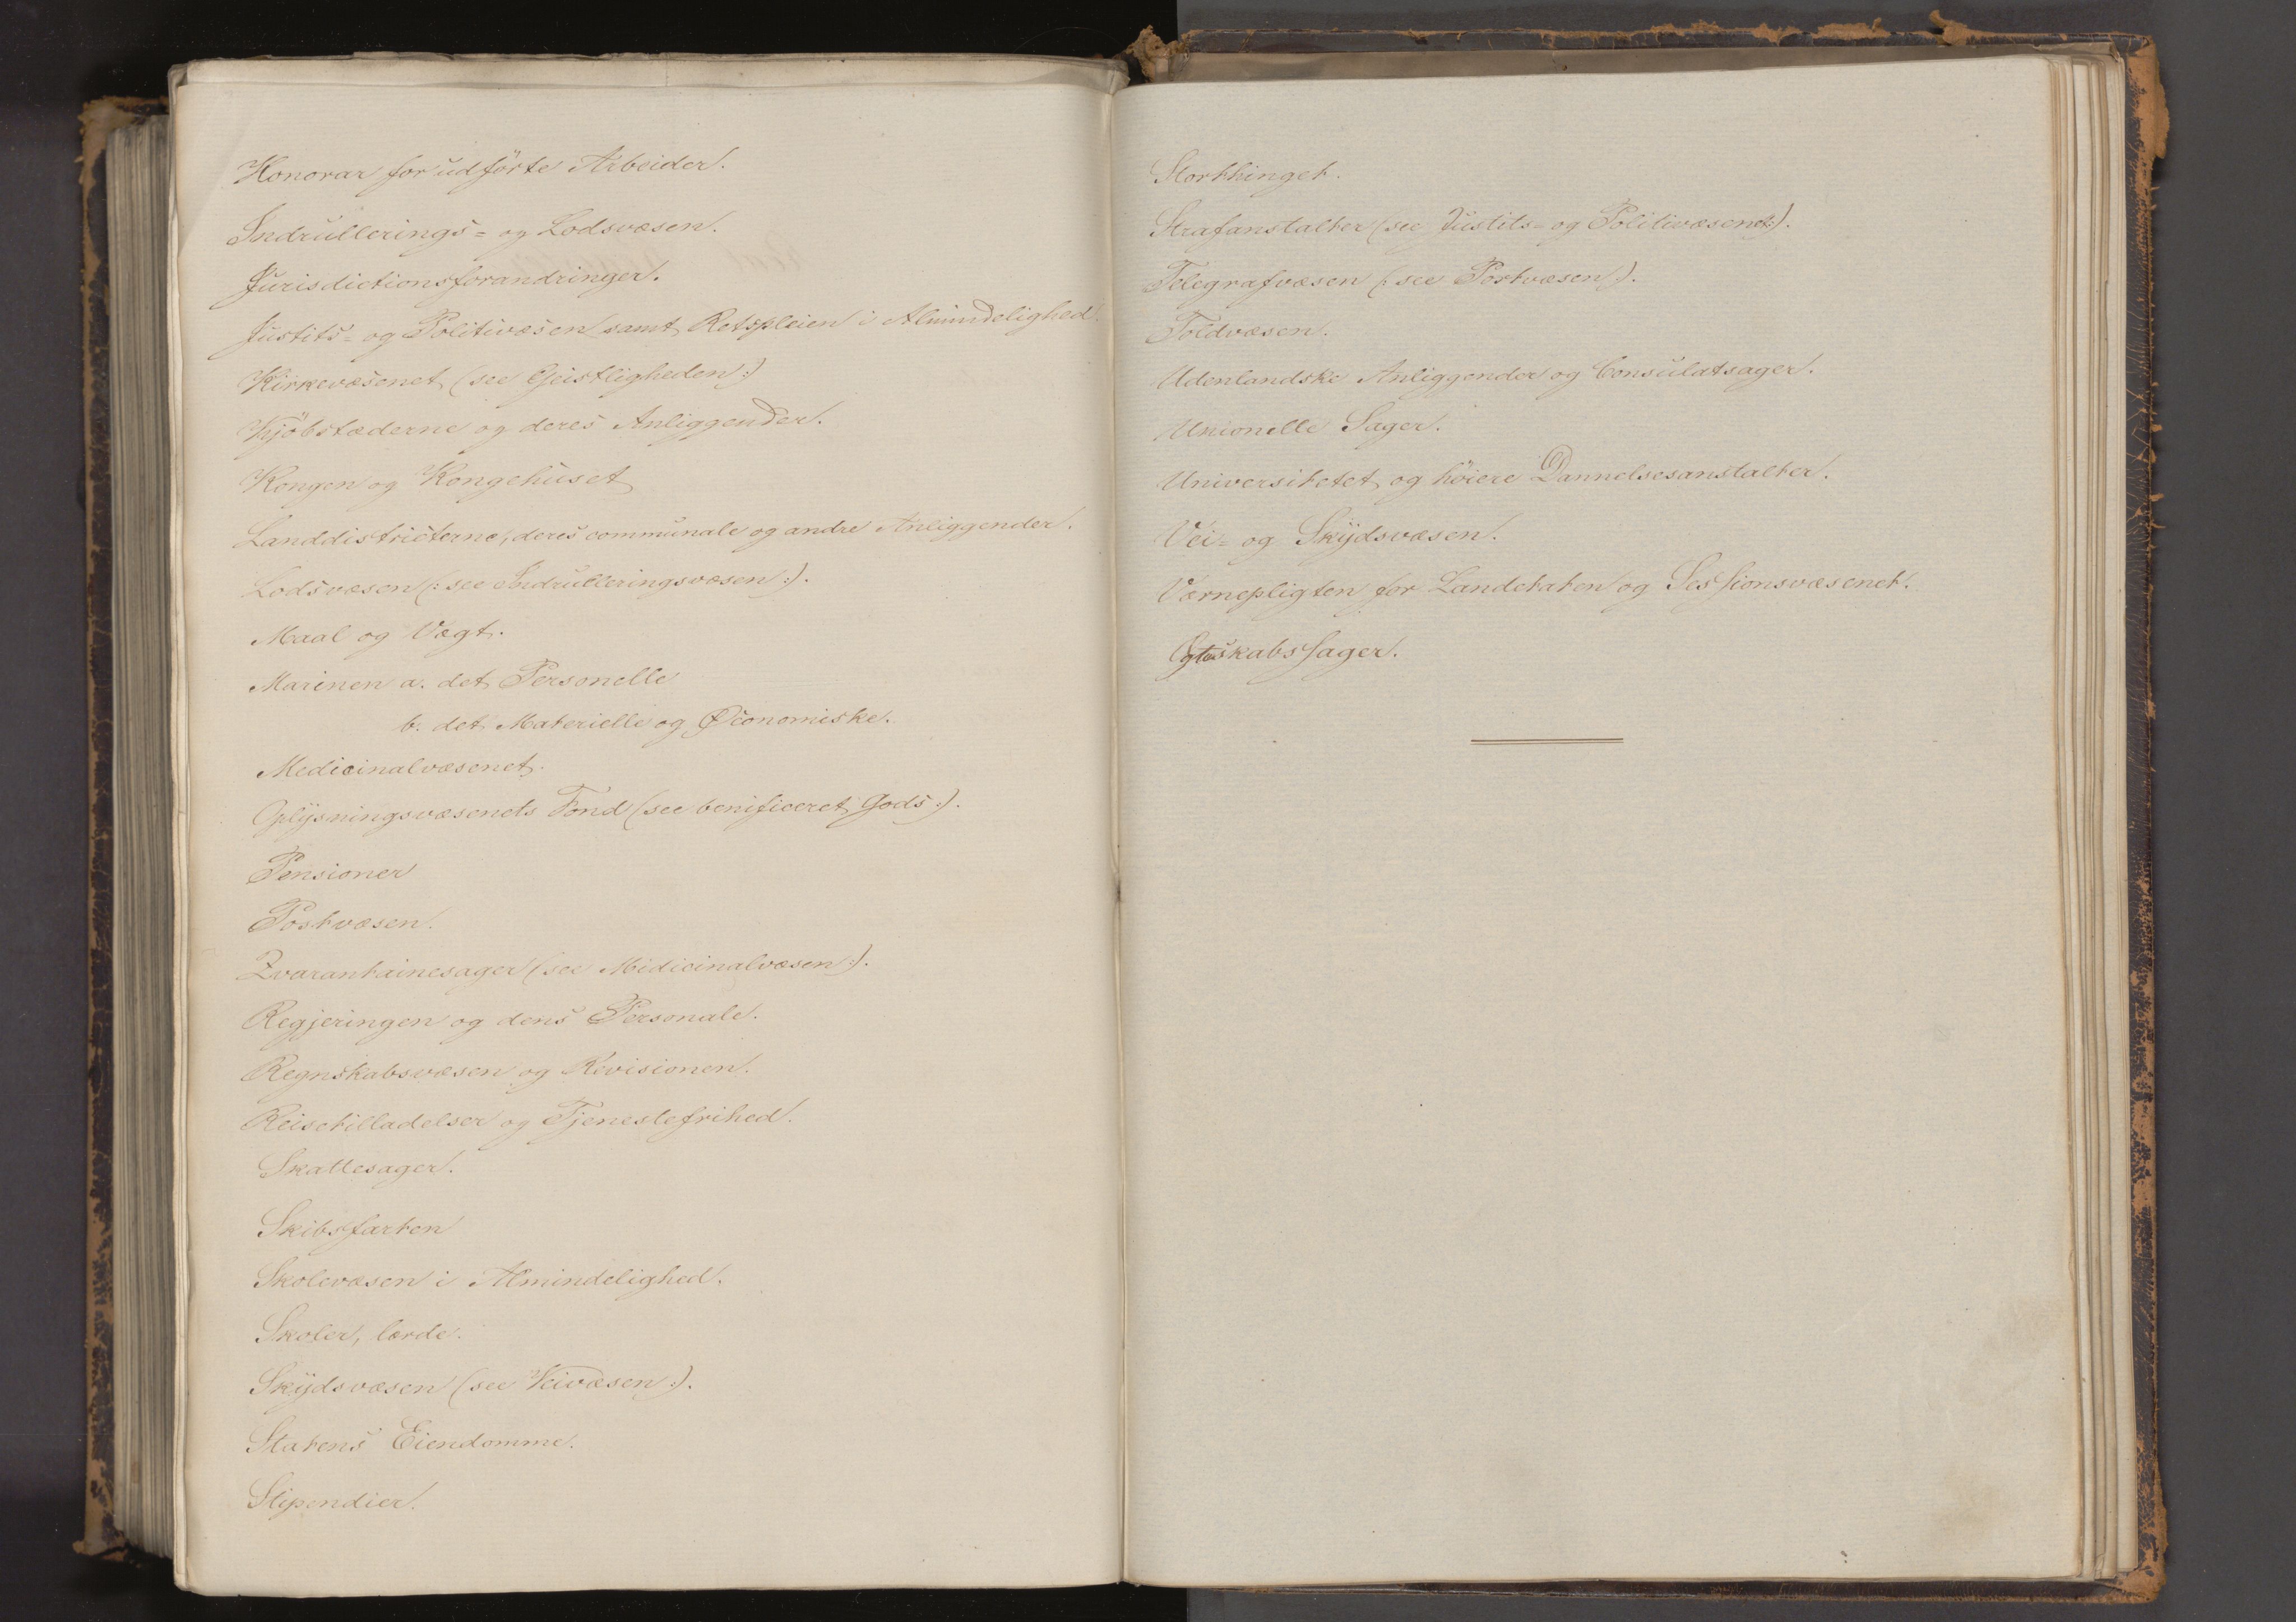 Honorar for udförte Arbeider.
Indrullerings= og Lodsvæsen.
Jurisdictionsforandringer.
Justits= og Politivæsen samt Retspleien i Almindelighed.
Kirkevæsenet (see Geistligheden:)
Kjöbstæderne og deres Anliggender.
Kongen og Kongehuset
Landdistricterne, deres communale og andre Anliggender.
Lodsvæsen (: see Indrulleringsvæsen:).
Maal og Vægt.
Marinen a. det Personelle
b. det Materielle og Øconomiske.
Medicinalvæsenet.
Oplysningsvæsenets Fond (see benificeret Gods:).
Pensioner
Postvæsen.
Qvarantainesager (see Midicinalvæsen:).
Regjeringen og dens Personale.
Regnskabsvæsen og Revisionen.
Reisetilladelser og Tjenestefrihed.
Skattesager.
Skibsfarten
Skolevæsen i Almindelighed.
Skoler, lærde.
Skydsvæsen (see Veivæsen:).
Statens Eiendomme.
Stipendier.
Storthinget.
Strafanstalter (see Justits= og Politivæsenet:).
Telegrafvæsen (: see Postvæsen).
Toldvæsen.
Udenlandske Anliggender og Consulatsager.
Unionelle Sager.
Universitetet og höiere Dannelsesanstalter.
Vei= og Skydsvæsen.
Værnepligten for Landetaten og Sessionsvæsenet.
Ægteskabssager.